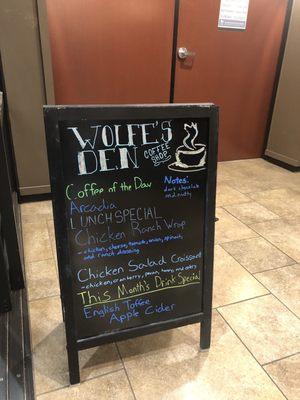 WOLFE'S
DEN COFFEE
SHOP
Coffee of the Day
Notes:
dark chocolate
and nutty
Arcadia
LUNCH SPECIAL
Chicken Ranch Wrap
- chicken, cheese, tomato, onion, spinach
and ranch dressing
Chicken Salad Croissant
- chicken, cranberry, pecan, honey, and celery
This Month's Drink Special
English Toffee
Apple Cider